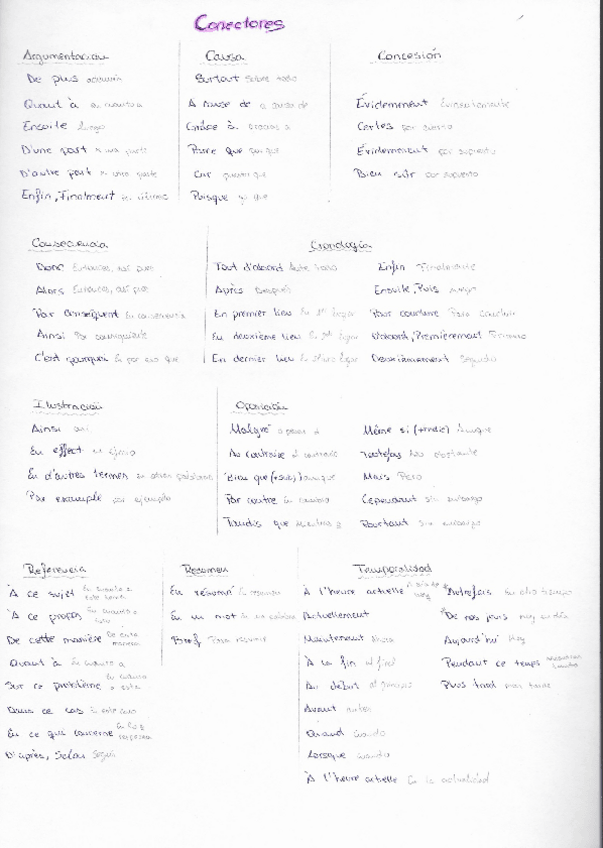 Conectores
Argumentación
De plus
Quant à en cuanto a
Ensuite luego
D'une part
D'autre part
Enfin, Finalment
Causa
Surtout sobre todo
À cause de a causa de
Grâce à gracias a
Parce que porque
Car puesto que
Puisque ya que
Concesión
Évidemment
Certes por cierto
Évidemment por supuesto
Bien sûr por supuesto
Consecuencia
Donc Entonces, así pues
Alors Entonces, así pues
Par conséquent En consecuencia
Ainsi Por consiguiente
C'est pourquoi Es por eso que
Cronología
Tout d'abord Ante todo
Après Después
En premier lieu En 1er lugar
En deuxième lieu En 2º lugar
En dernier lieu
Enfin Finalmente
Ensuite, Puis luego
Pour conclure Para concluir
D'abord, Premièrement Primero
Deuxièmement Segundo
Ilustración
Ainsi así
En effect en efecto
En d'autres termes en otras palabras
Par exemple por ejemplo
Oposición
Malgré a pesar d
Au contraire al contrario
Bien que (+sub) aunque
Par contre En cambio
Tandis que mientras q
Même si (+indic) Aunque
Toutefois No obstante
Mais Pero
Cependant sin embargo
Pourtant sin embargo
Referencia
À ce sujet En cuanto a este tema
À ce propos En cuanto a esto
De cette manière De esta manera
Quant à En cuanto a
Sur ce problème En cuanto a esto
Dans ce cas En este caso
En ce que concerne
D'après, Selon Según
Resumen
En résumé En resumen
En un mot En una palabra
Bref Para resumir
Temporalidad
À l'heure actuelle
Actuellement
Maintenant Ahora
À la fin al final
Au début al principio
Avant antes
Quand cuando
Lorsque cuando
À l'heure actuelle En la actualidad
Autrefois En otro tiempo
De nos jours hoy en día
Aujourd'hui Hoy
Pendant ce temps mientras tanto
Plus tard más tarde